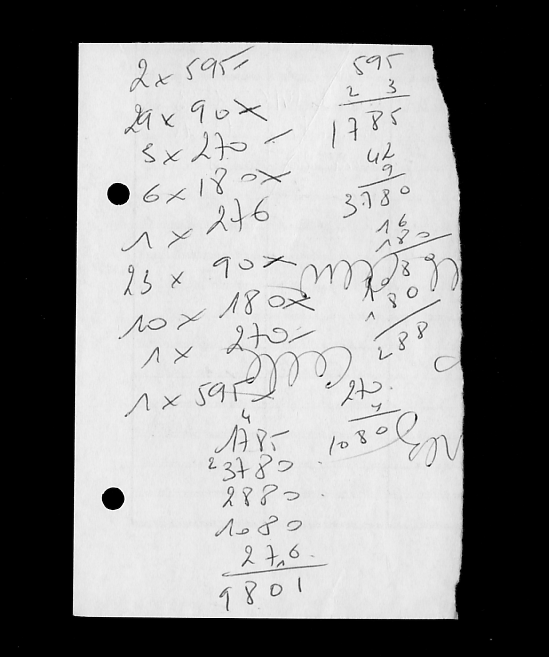 2 x 595 -
19 x 90 x
3 x 270 -
6 x 180 x
1 x 276
23 x 90 x
10 x 180 x
1 x 270 -
1 x 595 x
4
1785
2 3780
2880
1080
276
9801
595
2 3
1785
42
9
3780
16
180
108
180
288
270
4
1080